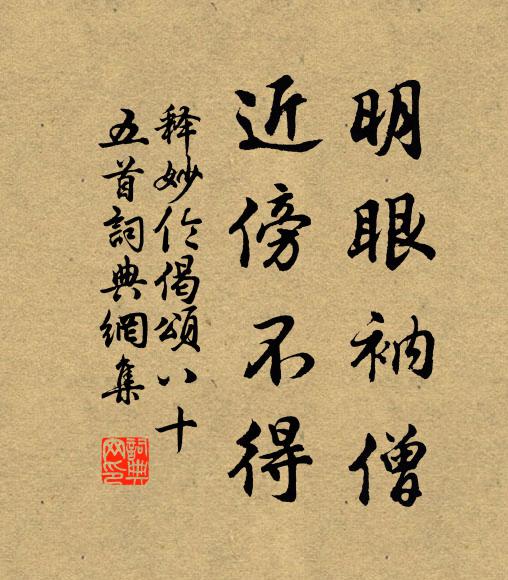 明眼衲僧
近傍不得
释妙伦偈頌八十
五首詞典網集
詞典网印